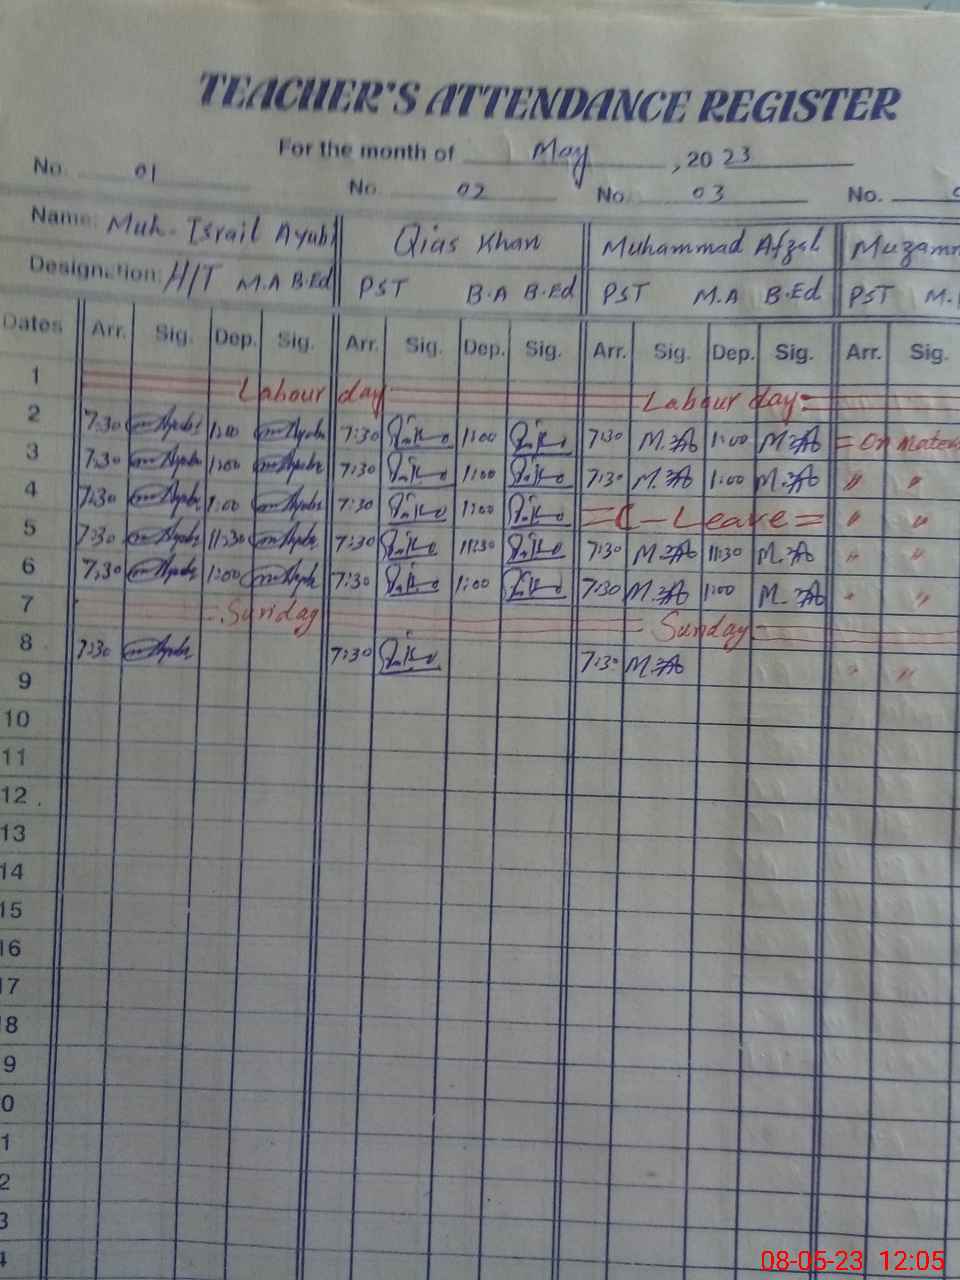 TEACHER'S ATTENDANCE REGISTER
For the month of May, 2023
No. 01 No. 02 No. 03 No.
Name: Muh. Israil Ayubi Qias Khan Muhammad Afzal
Designation: H/T M.A B.Ed PST B.A B.Ed PST M.A B.Ed PST
Dates Arr. Sig. Dep. Sig. Arr. Sig. Dep. Sig. Arr. Sig. Dep. Sig. Arr. Sig.
1 Labour day Labour day
2 7:30 1:00 7:30 1:00 7:30 M.A 1:00 M.A = On
3 7:30 1:00 7:30 1:00 7:30 M.A 1:00 M.A " "
4 7:30 1:00 7:30 1:00 = C - Leave = " "
5 7:30 11:30 7:30 11:30 7:30 M.A 11:30 M.A " "
6 7:30 1:00 7:30 1:00 7:30 M.A 1:00 M.A " "
7 Sunday Sunday
8 7:30 7:30 7:30 M.A " "
9
10
11
12
13
14
15
16
17
18
9
0
1
2
3
4
08-05-23 12:05